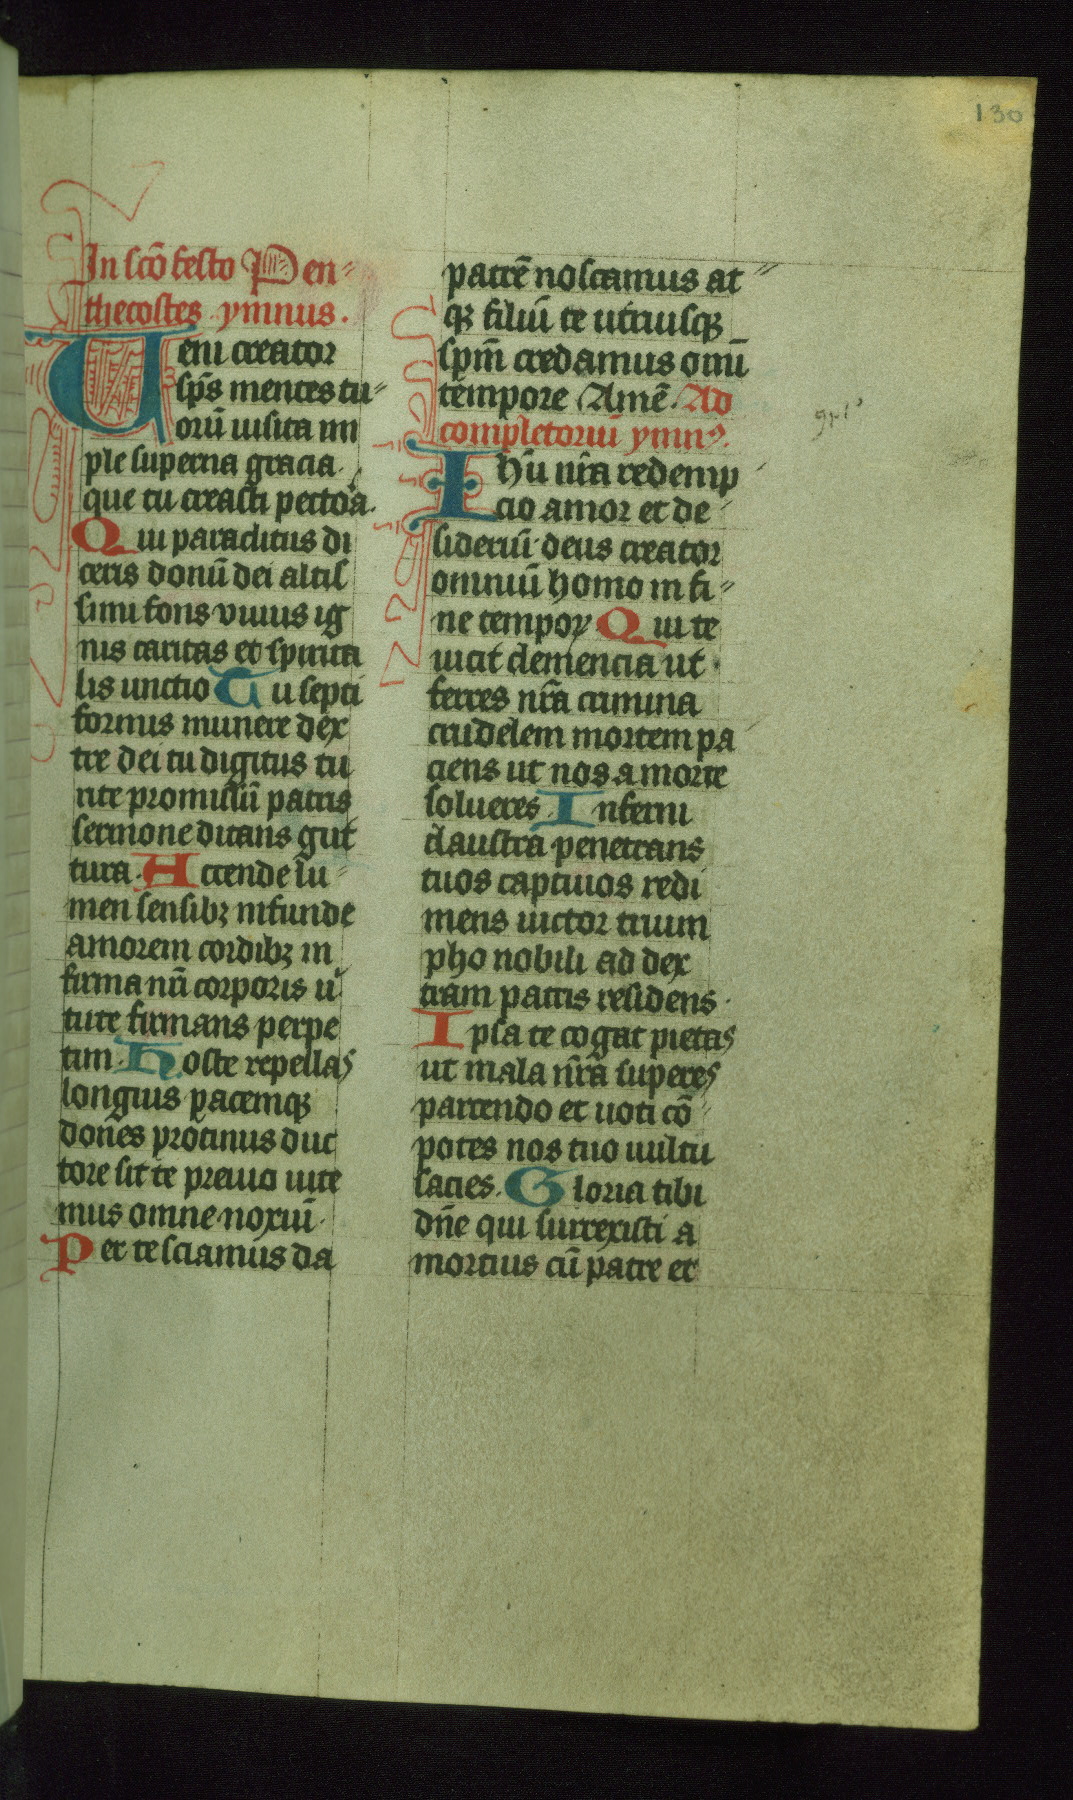 130
In scō festo Pen-
thecostes ymnus.
Ueni creator
sp̄s mentes tu-
orū uisita im
ple superna gracia
que tu creasti pectora.
Qui paraclitus di
ceris donū dei altis
simi fons viuus ig
nis caritas et spirita
lis unctio Tu septi
formis munere dex
tre dei tu digitus tu
rite promissū patris
sermone ditans gut
tura. Accende lu-
men sensibꝫ infunde
amorem cordibꝫ in
firma nr̄i corporis uͥ
tute firmans perpe
tim. Hoste repellas
longius pacemqꝫ
dones protinus duc
tore sic te preuio uite
mus omne noxiū.
Per te sciamus da
patrē noscamus at-
qꝫ filiū te utriusqꝫ
sp̄m credamus omī
tempore Amē. Ad
completoriū ymnꝰ.
Ihū nr̄a redemp
cio amor et de-
sideriū deus creator
omniū homo in fi-
ne temporꝝ Qui te
uicit clemencia ut
ferres nr̄a crimina
crudelem mortem pa
ciens ut nos a morte
solueres. Inferni
claustra penetrans
tuos captiuos redi
mens uictor trium
pho nobili ad dex
tram patris residens.
Ipsa te cogat pietas
ut mala nr̄a superes
parcendo et uoti cō-
potes nos tuo uultu
sacies. Gloria tibi
dn̄e qui surrexisti a
mortuis cū patre et